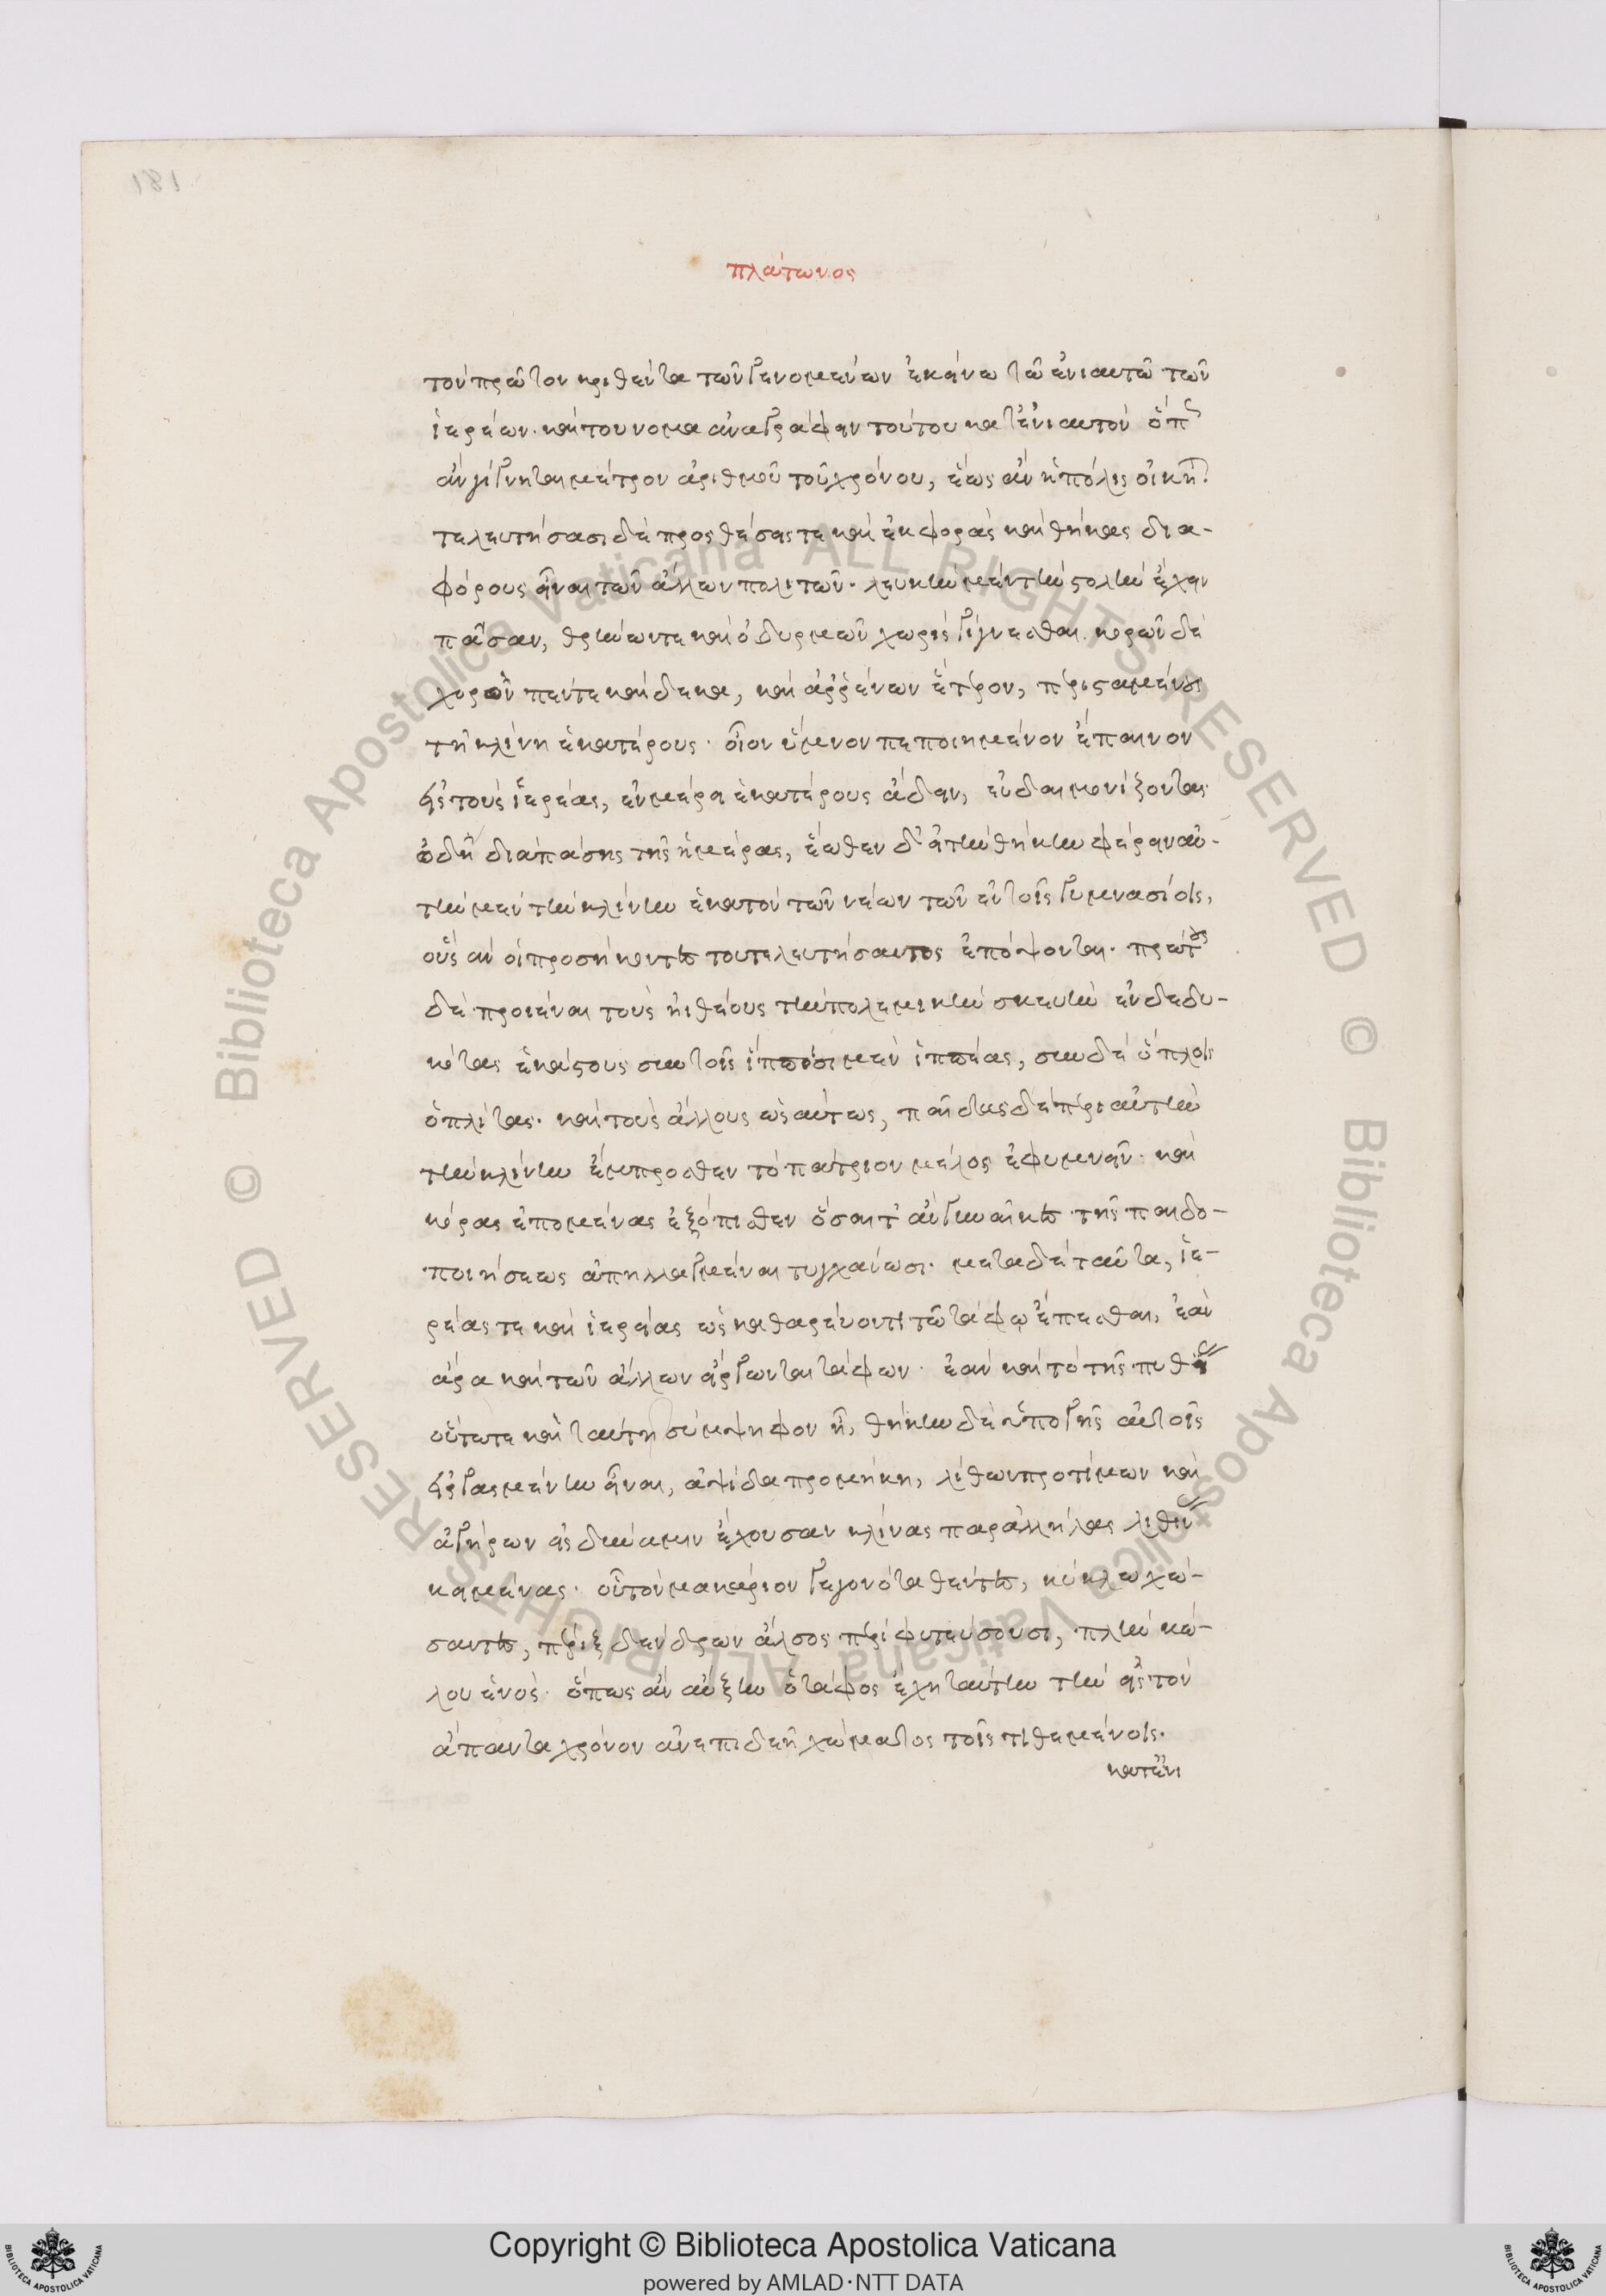 181
πλάτωνος
τὸν πρῶτον κριθέντα τῶν γενομένων ἐκείνω τῶ ἐνιαυτῶ τῶν
ἱερέων. καὶ τοὔνομα ἀναγράφειν τούτου κατ' ἐνιαυτὸν ὅπως
ἂν γίγνηται μέτρον ἀριθμοῦ τοῦ χρόνου, ἕως ἂν ἡ πόλις οἰκῆται
τελευτήσασι δὲ προθέσεις τε καὶ ἐκφορὰς καὶ θήκας δια-
φόρους εἶναι τῶν ἄλλων πολιτῶν. λευκὴν μὲν τὴν στολὴν ἔχειν
πᾶσαν, θρήνων τε καὶ ὀδυρμῶν χωρὶς γίγνεσθαι. κορῶν δὲ
χορὸν πέντε καὶ δέκα, καὶ ἀρῥένων ἕτερον, περισταμένους
τῆ κλίνη ἑκατέρους. οἷον ὕμνον πεποιημένον ἔπαινον
εἰς τοὺς ἱερέας, ἐν μέρει ἑκατέρους ἄδειν, εὐδαιμονίζοντας
ὠδῆ διὰ πάσης τῆς ἡμέρας, ἕωθεν δ' εἰς τὴν θήκην φέρειν αὐ-
τὴν μὲν τὴν κλίνην ἑκατὸν τῶν νέων τῶν ἐν τοῖς γυμνασίοις,
οὓς ἂν οἱ προσήκοντες τοῦ τελευτήσαντος ἐπόψονται. πρώτους
δὲ προιέναι τοὺς ἠιθέους τὴν πολεμικὴν σκευὴν ἐνδεδυ-
κότας ἑκάστους σὺν τοῖς ἵπποισι μὲν ἱππέας, σὺν δὲ ὅπλοις
ὁπλίτας. καὶ τοὺς ἄλλους ὡσαύτως, παῖδας δὲ περὶ αὐτὴν
τὴν κλίνην ἔμπροσθεν τὸ πάτριον μέλος ἐφυμνεῖν. καὶ
κόρας ἑπομένας ἐξόπισθεν ὅσαι τ' ἂν γυναῖκες τῆς παιδο-
ποιήσεως ἀπηλλαγμέναι τυγχάνωσι. μετὰ δὲ ταῦτα, ἱε-
ρέας τε καὶ ἱερείας ὡς καθαρεύοντι τῶ τάφῳ ἕπεσθαι, ἐὰν
ἄρα καὶ τῶν ἄλλων εἴργωνται τάφων. ἐὰν καὶ τὸ τῆς πυθίας
οὕτω τε καὶ ταύτη σύμψηφον ἦ, θήκην δὲ ὑπὸ γῆς αὐτοῖς
εἰργασμένην εἶναι, ἁψίδα προμήκη, λίθων προτίμων καὶ
ἀγήρων εἰς δύναμιν ἔχουσαν κλίνας παραλλήλας λιθίνας
κειμένας. οὗ τὸν μακάριον γεγονότα θέντες, κύκλω χώ-
σαντες, πέριξ δένδρων ἄλσος περιφυτεύσουσι, πλὴν κώ-
λου ἑνός. ὅπως ἂν αὔξην ὁ τάφος ἔχη ταύτην τὴν εἰς τὸν
ἅπαντα χρόνον ἀνεπιδεῆ χώματος τοῖς τιθεμένοις.
κατ' ἐνι
Copyright © Biblioteca Apostolica Vaticana
powered by AMLAD·NTT DATA